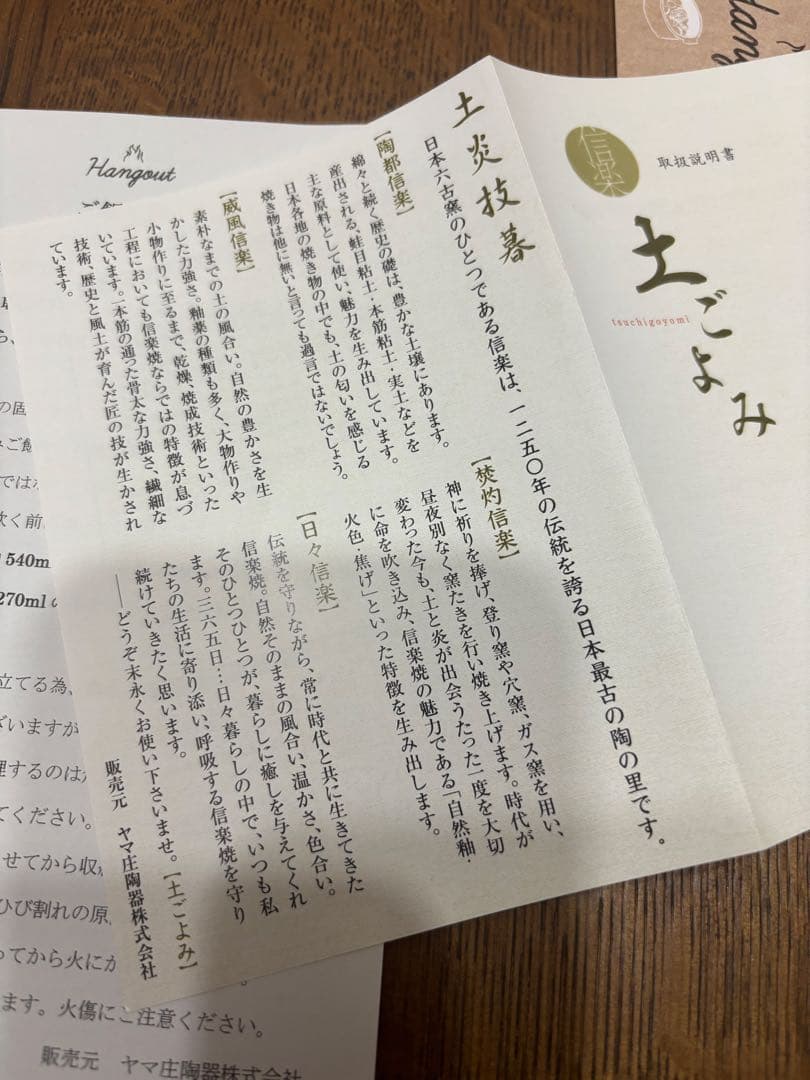 信楽
取扱説明書
土ごよみ
tsuchigoyomi
土炎技暮
日本六古窯のひとつである信楽は、一二五〇年の伝統を誇る日本最古の陶の里です。
【陶都信楽】
綿々と続く歴史の礎は、豊かな土壌にあります。
産出される、蛙目粘土・本筋粘土・実土などを
主な原料として使い、魅力を生み出しています。
日本各地の焼き物の中でも、土の匂いを感じる
焼き物は他に無いと言っても過言ではないでしょう。
【威風信楽】
素朴なまでの土の風合い。自然の豊かさを生
かした力強さ。釉薬の種類も多く、大物作りや
小物作りに至るまで、乾燥、焼成技術といった
工程においても信楽焼ならではの特徴が息づ
いています。一本筋の通った骨太な力強さ、繊細な
技術、歴史と風土が育んだ匠の技が生かされ
ています。
【焚灼信楽】
神に祈りを捧げ、登り窯や穴窯、ガス窯を用い、
昼夜別なく窯たきを行い焼き上げます。時代が
変わった今も、土と炎が出会うたった一度を大切
に命を吹き込み、信楽焼の魅力である「自然釉・
火色・焦げ」といった特徴を生み出します。
【日々信楽】
伝統を守りながら、常に時代と共に生きてきた
信楽焼。自然そのままの風合い、温かさ、色合い。
そのひとつひとつが、暮らしに癒しを与えてくれ
ます。三六五日…日々暮らしの中で、いつも私
たちの生活に寄り添い、呼吸する信楽焼を守り
続けていきたく思います。
――どうぞ末永くお使い下さいませ。【土ごよみ】
販売元 ヤマ庄陶器株式会社
Hangout
の固
ご飯
では
炊く前
540m
270ml の
立てる為、
ざいますが
理するのは
てください。
せてから収
ひび割れの原
ってから火にか
ます。火傷にご注意ください。
販売元 ヤマ庄陶器株式会社